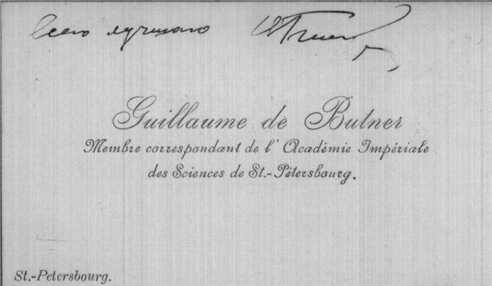 Всего лучшего
Guillaume de Butner
Membre correspondant de l'Académie Impériale
des Sciences de St.-Pétersbourg.
St.-Petersbourg.